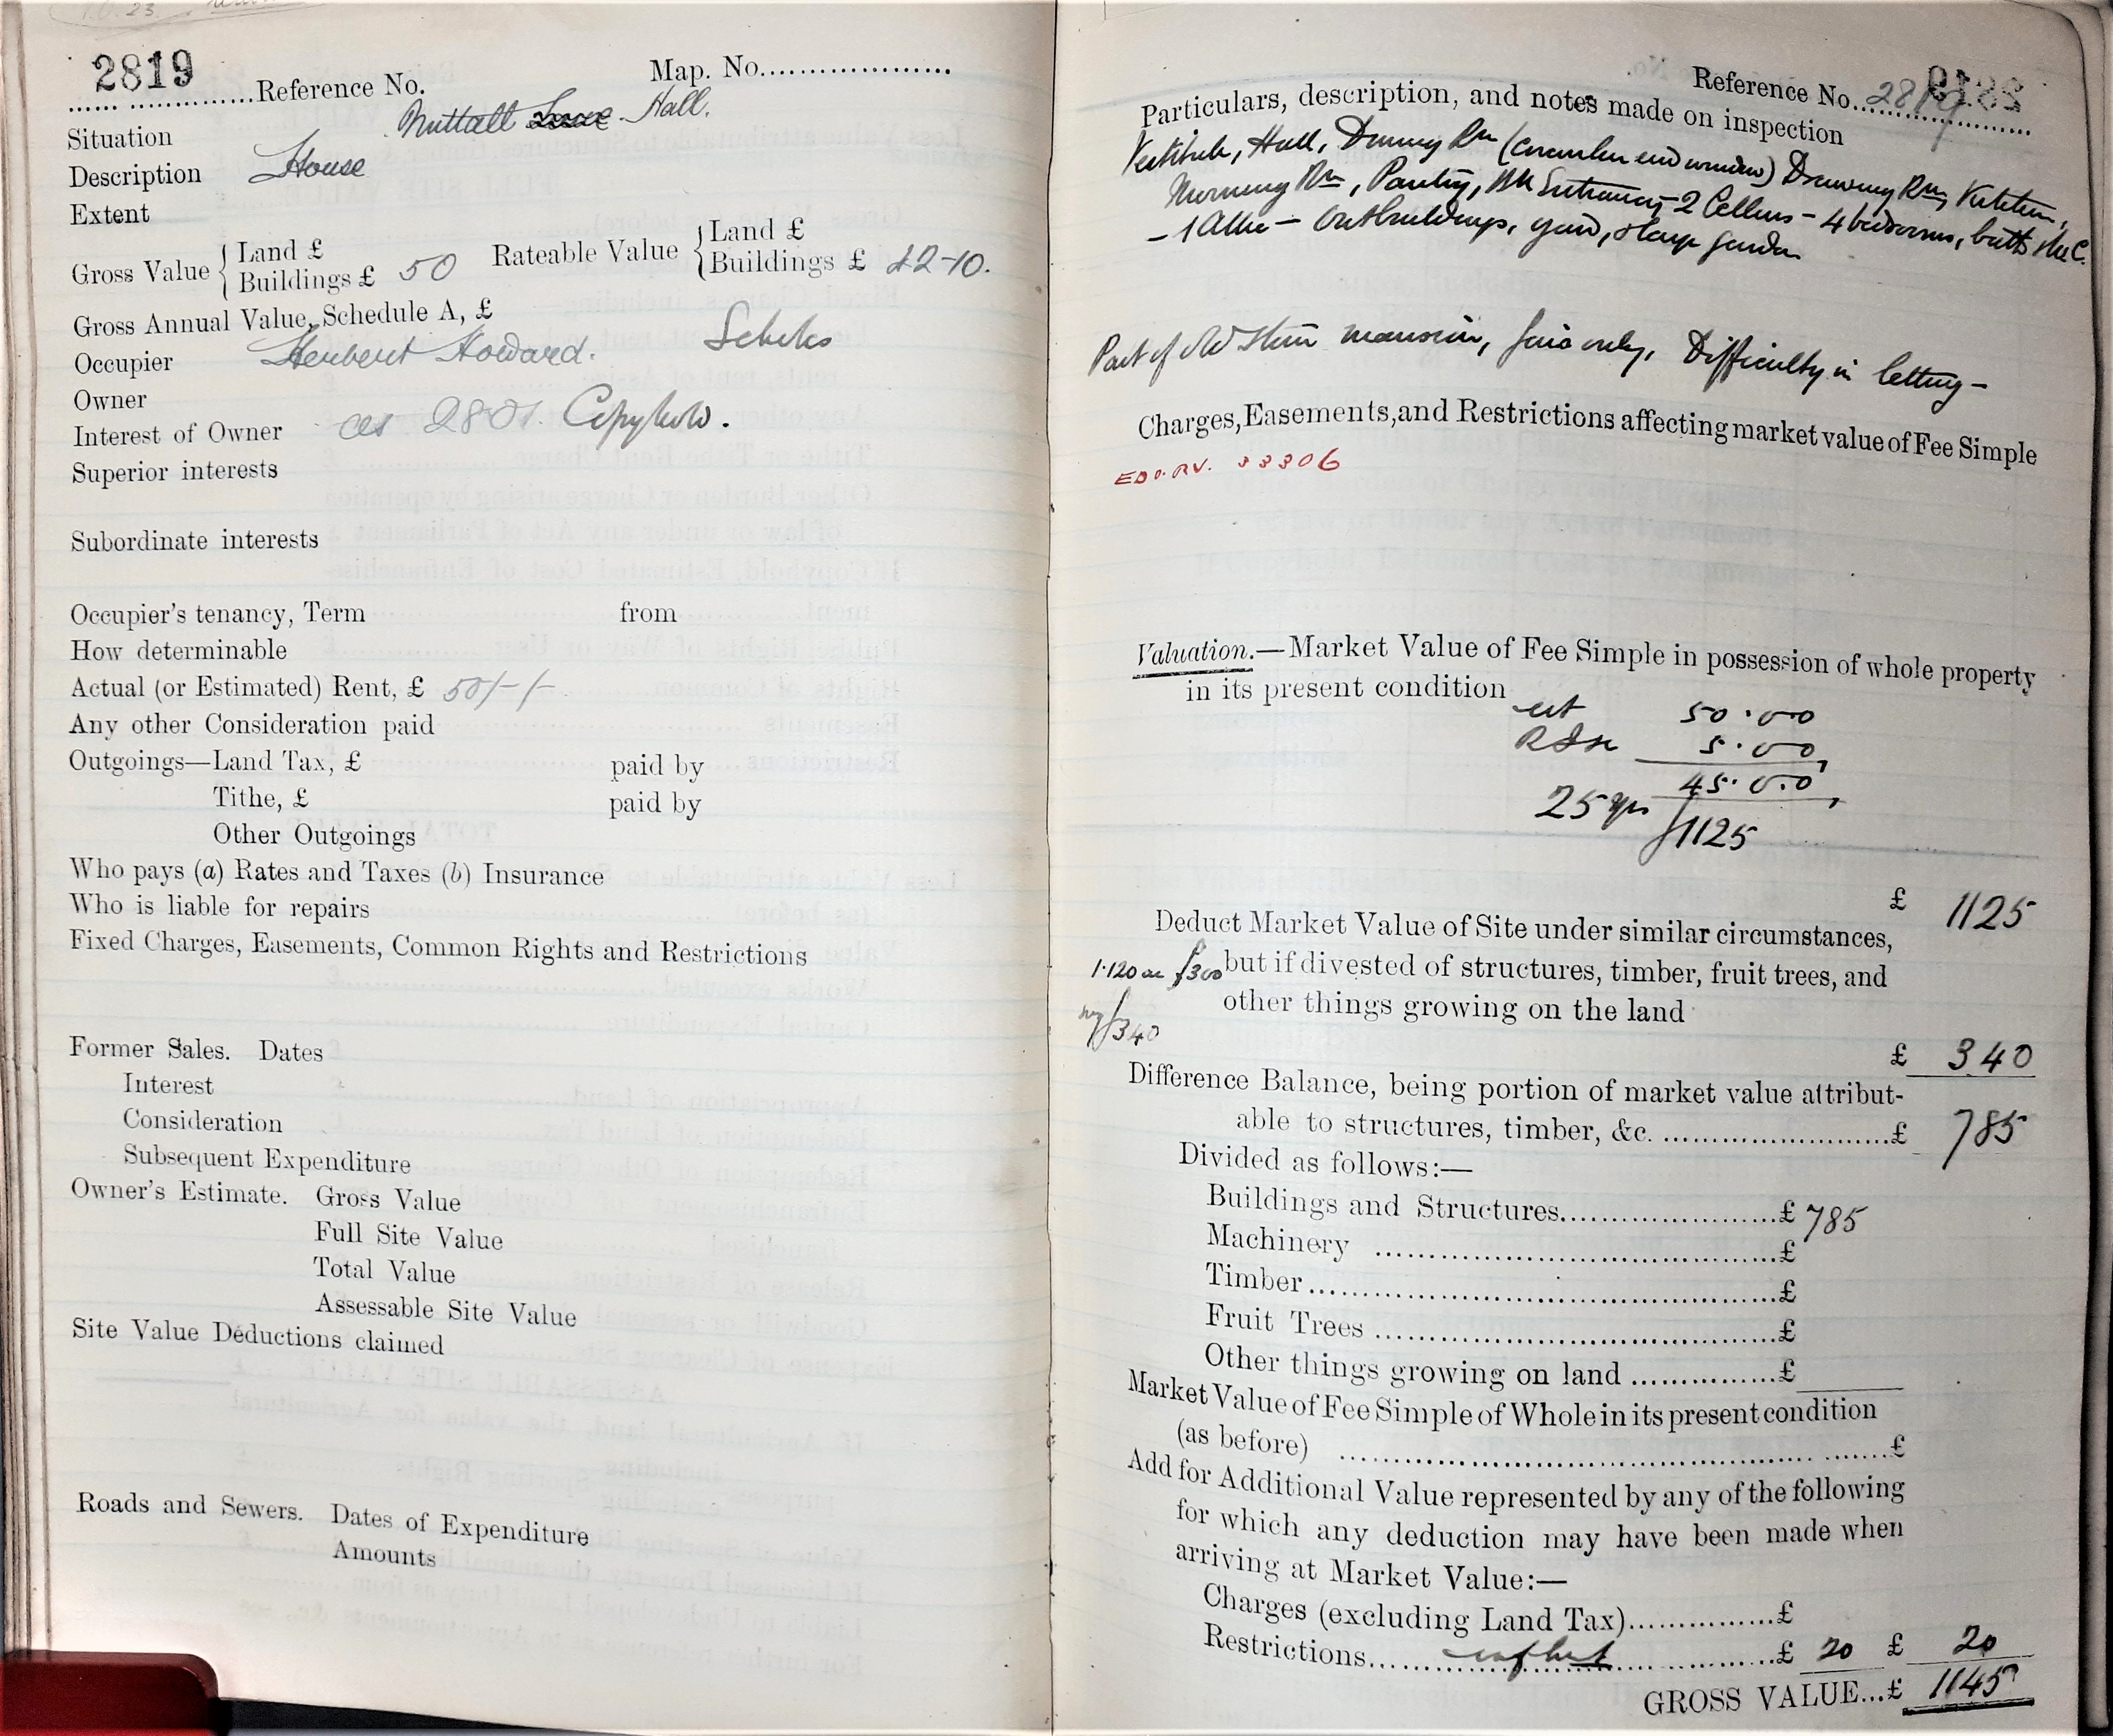 2819
Reference No.
Map. No.
Situation Nuttall Lane Hall.
Description House
Extent
Gross Value { Land £
Buildings £ 50
Rateable Value { Land £
Buildings £ 42-10.
Gross Annual Value, Schedule A, £
Occupier Herbert Howard.
Owner
Interest of Owner as 2801. Copyhold.
Superior interests
Subordinate interests
Occupier's tenancy, Term from
How determinable
Actual (or Estimated) Rent, £ 50/-/-
Any other Consideration paid
Outgoings—Land Tax, £ paid by
Tithe, £ paid by
Other Outgoings
Who pays (a) Rates and Taxes (b) Insurance
Who is liable for repairs
Fixed Charges, Easements, Common Rights and Restrictions
Former Sales. Dates
Interest
Consideration
Subsequent Expenditure
Owner's Estimate. Gross Value
Full Site Value
Total Value
Assessable Site Value
Site Value Deductions claimed
Roads and Sewers. Dates of Expenditure
Amounts
Reference No. 2819
Particulars, description, and notes made on inspection
Vestibule, Hall, Dining Rm (circular end window) Drawing Rm, Kitchen,
Morning Rm, Pantry, Bk Entrance, 2 Cellars - 4 bedrooms, bath & W.C.
- 1 Attic - Outbuildings, yard, & large garden
Part of old stone mansion, fair only, Difficulty in letting -
Charges, Easements, and Restrictions affecting market value of Fee Simple
33306
Valuation.—Market Value of Fee Simple in possession of whole property
in its present condition
est 50.0.0
5.0.0
45.0.0
25 yrs £1125
£ 1125
Deduct Market Value of Site under similar circumstances,
1.120 ac £300 but if divested of structures, timber, fruit trees, and
other things growing on the land
£340
£ 340
Difference Balance, being portion of market value attribut-
able to structures, timber, &c. £ 785
Divided as follows:—
Buildings and Structures £ 785
Machinery £
Timber £
Fruit Trees £
Other things growing on land £
Market Value of Fee Simple of Whole in its present condition
(as before) £
Add for Additional Value represented by any of the following
for which any deduction may have been made when
arriving at Market Value:—
Charges (excluding Land Tax) £
Restrictions £ 20 £ 20
GROSS VALUE...£ 1145